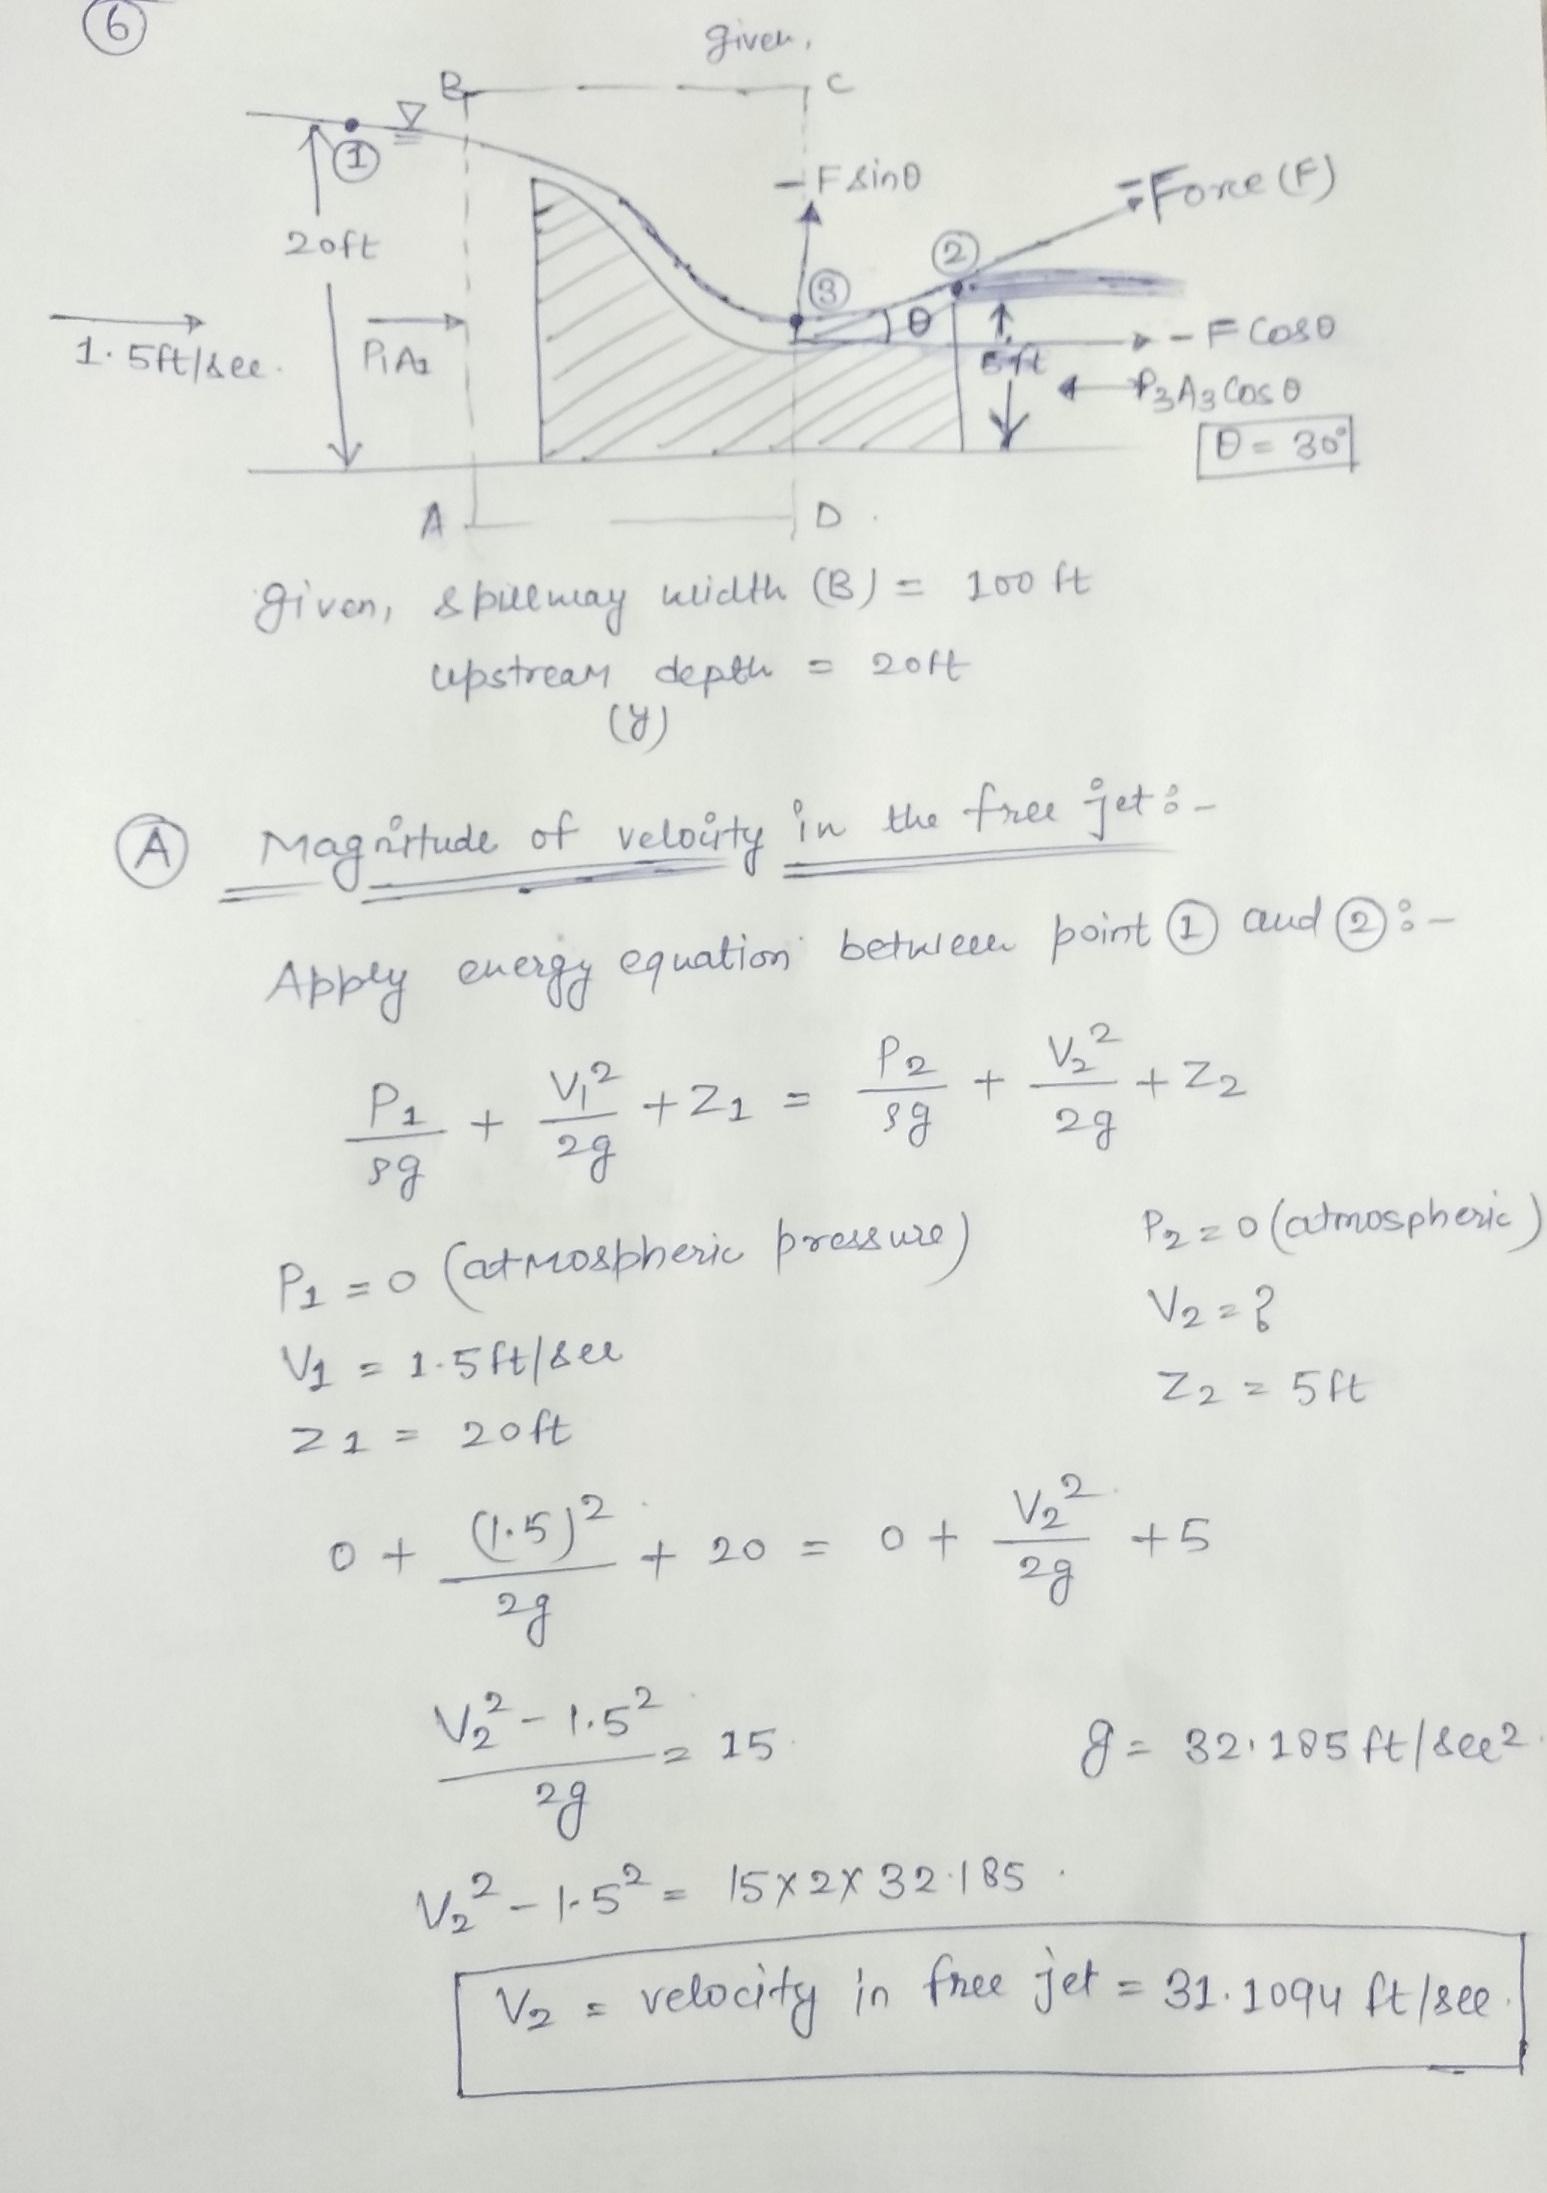 6
given,
B C
1
-F sinθ
=Force (F)
20ft
2
3
θ
1.5ft/sec.
P1A1
5ft
-F Cosθ
P3A3 Cosθ
θ = 30°
A D.
given, spillway width (B) = 100 ft
upstream depth = 20ft
(y)
A Magnitude of velocity in the free jet:-
Apply energy equation between point 1 and 2:-
P1/ρg + V1²/2g + Z1 = P2/ρg + V2²/2g + Z2
P1 = 0 (atmospheric pressure) P2 = 0 (atmospheric)
V1 = 1.5ft/sec V2 = ?
Z1 = 20ft Z2 = 5ft
0 + (1.5)²/2g + 20 = 0 + V2²/2g + 5
V2² - 1.5²/2g = 15 g = 32.185 ft/sec².
V2² - 1.5² = 15 x 2 x 32.185.
V2 = velocity in free jet = 31.1094 ft/sec.